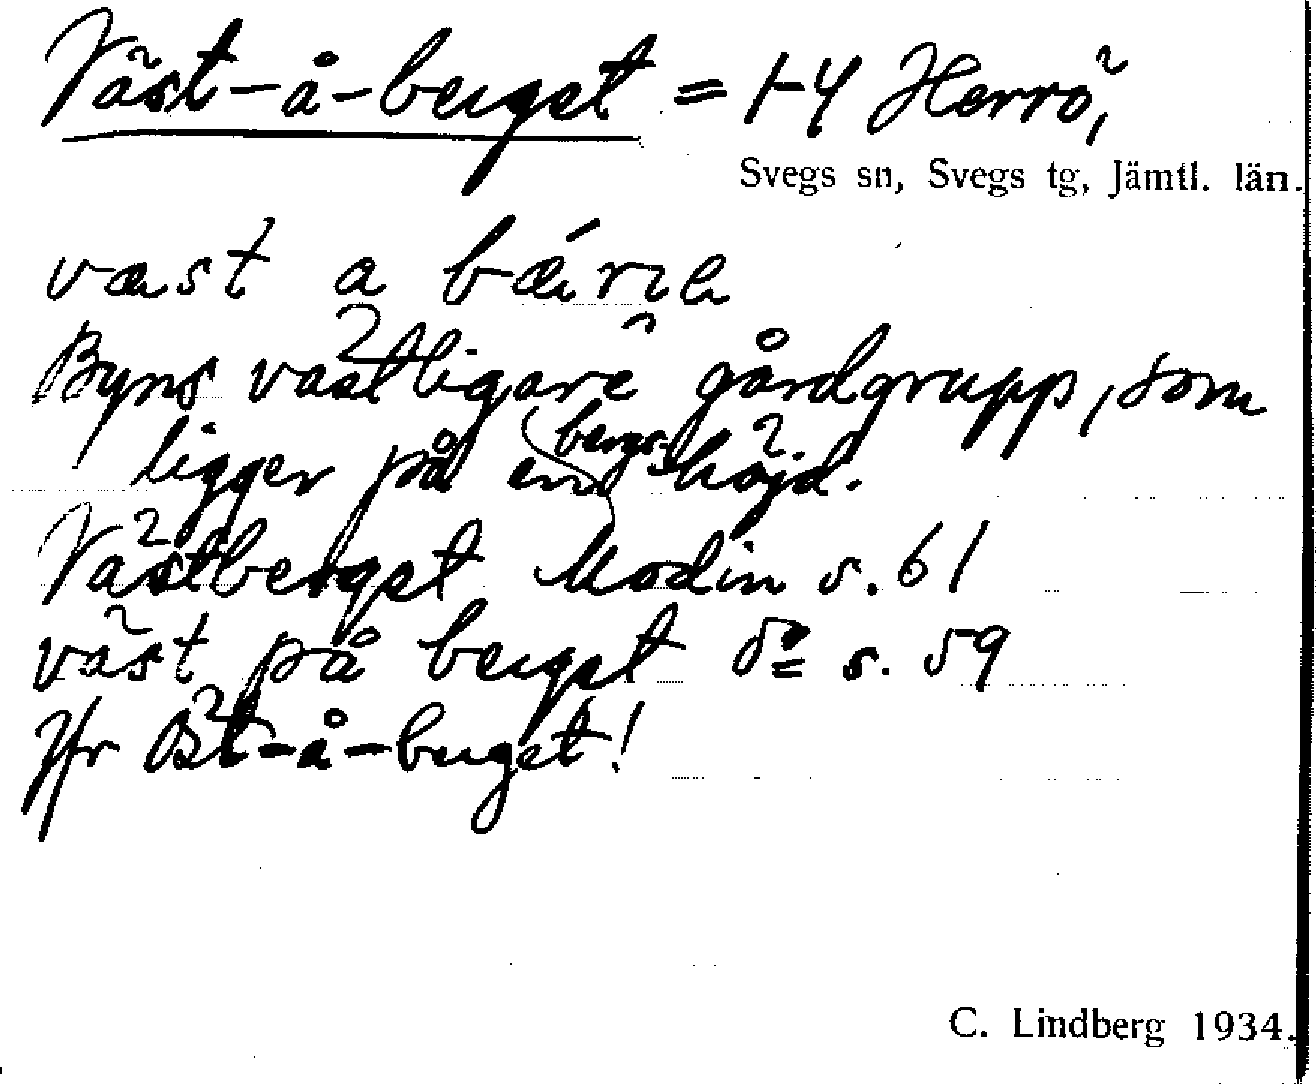 Väst-å-berget = 1-4 Herrö,
Svegs sn, Svegs tg, Jämtl. län.
væst a
Byns västligare gårdgrupp, som
ligger på en bergs-höjd.
Västberget Modin s. 61
väst på berget do s. 59
Jfr Öst-å-berget!
C. Lindberg 1934.